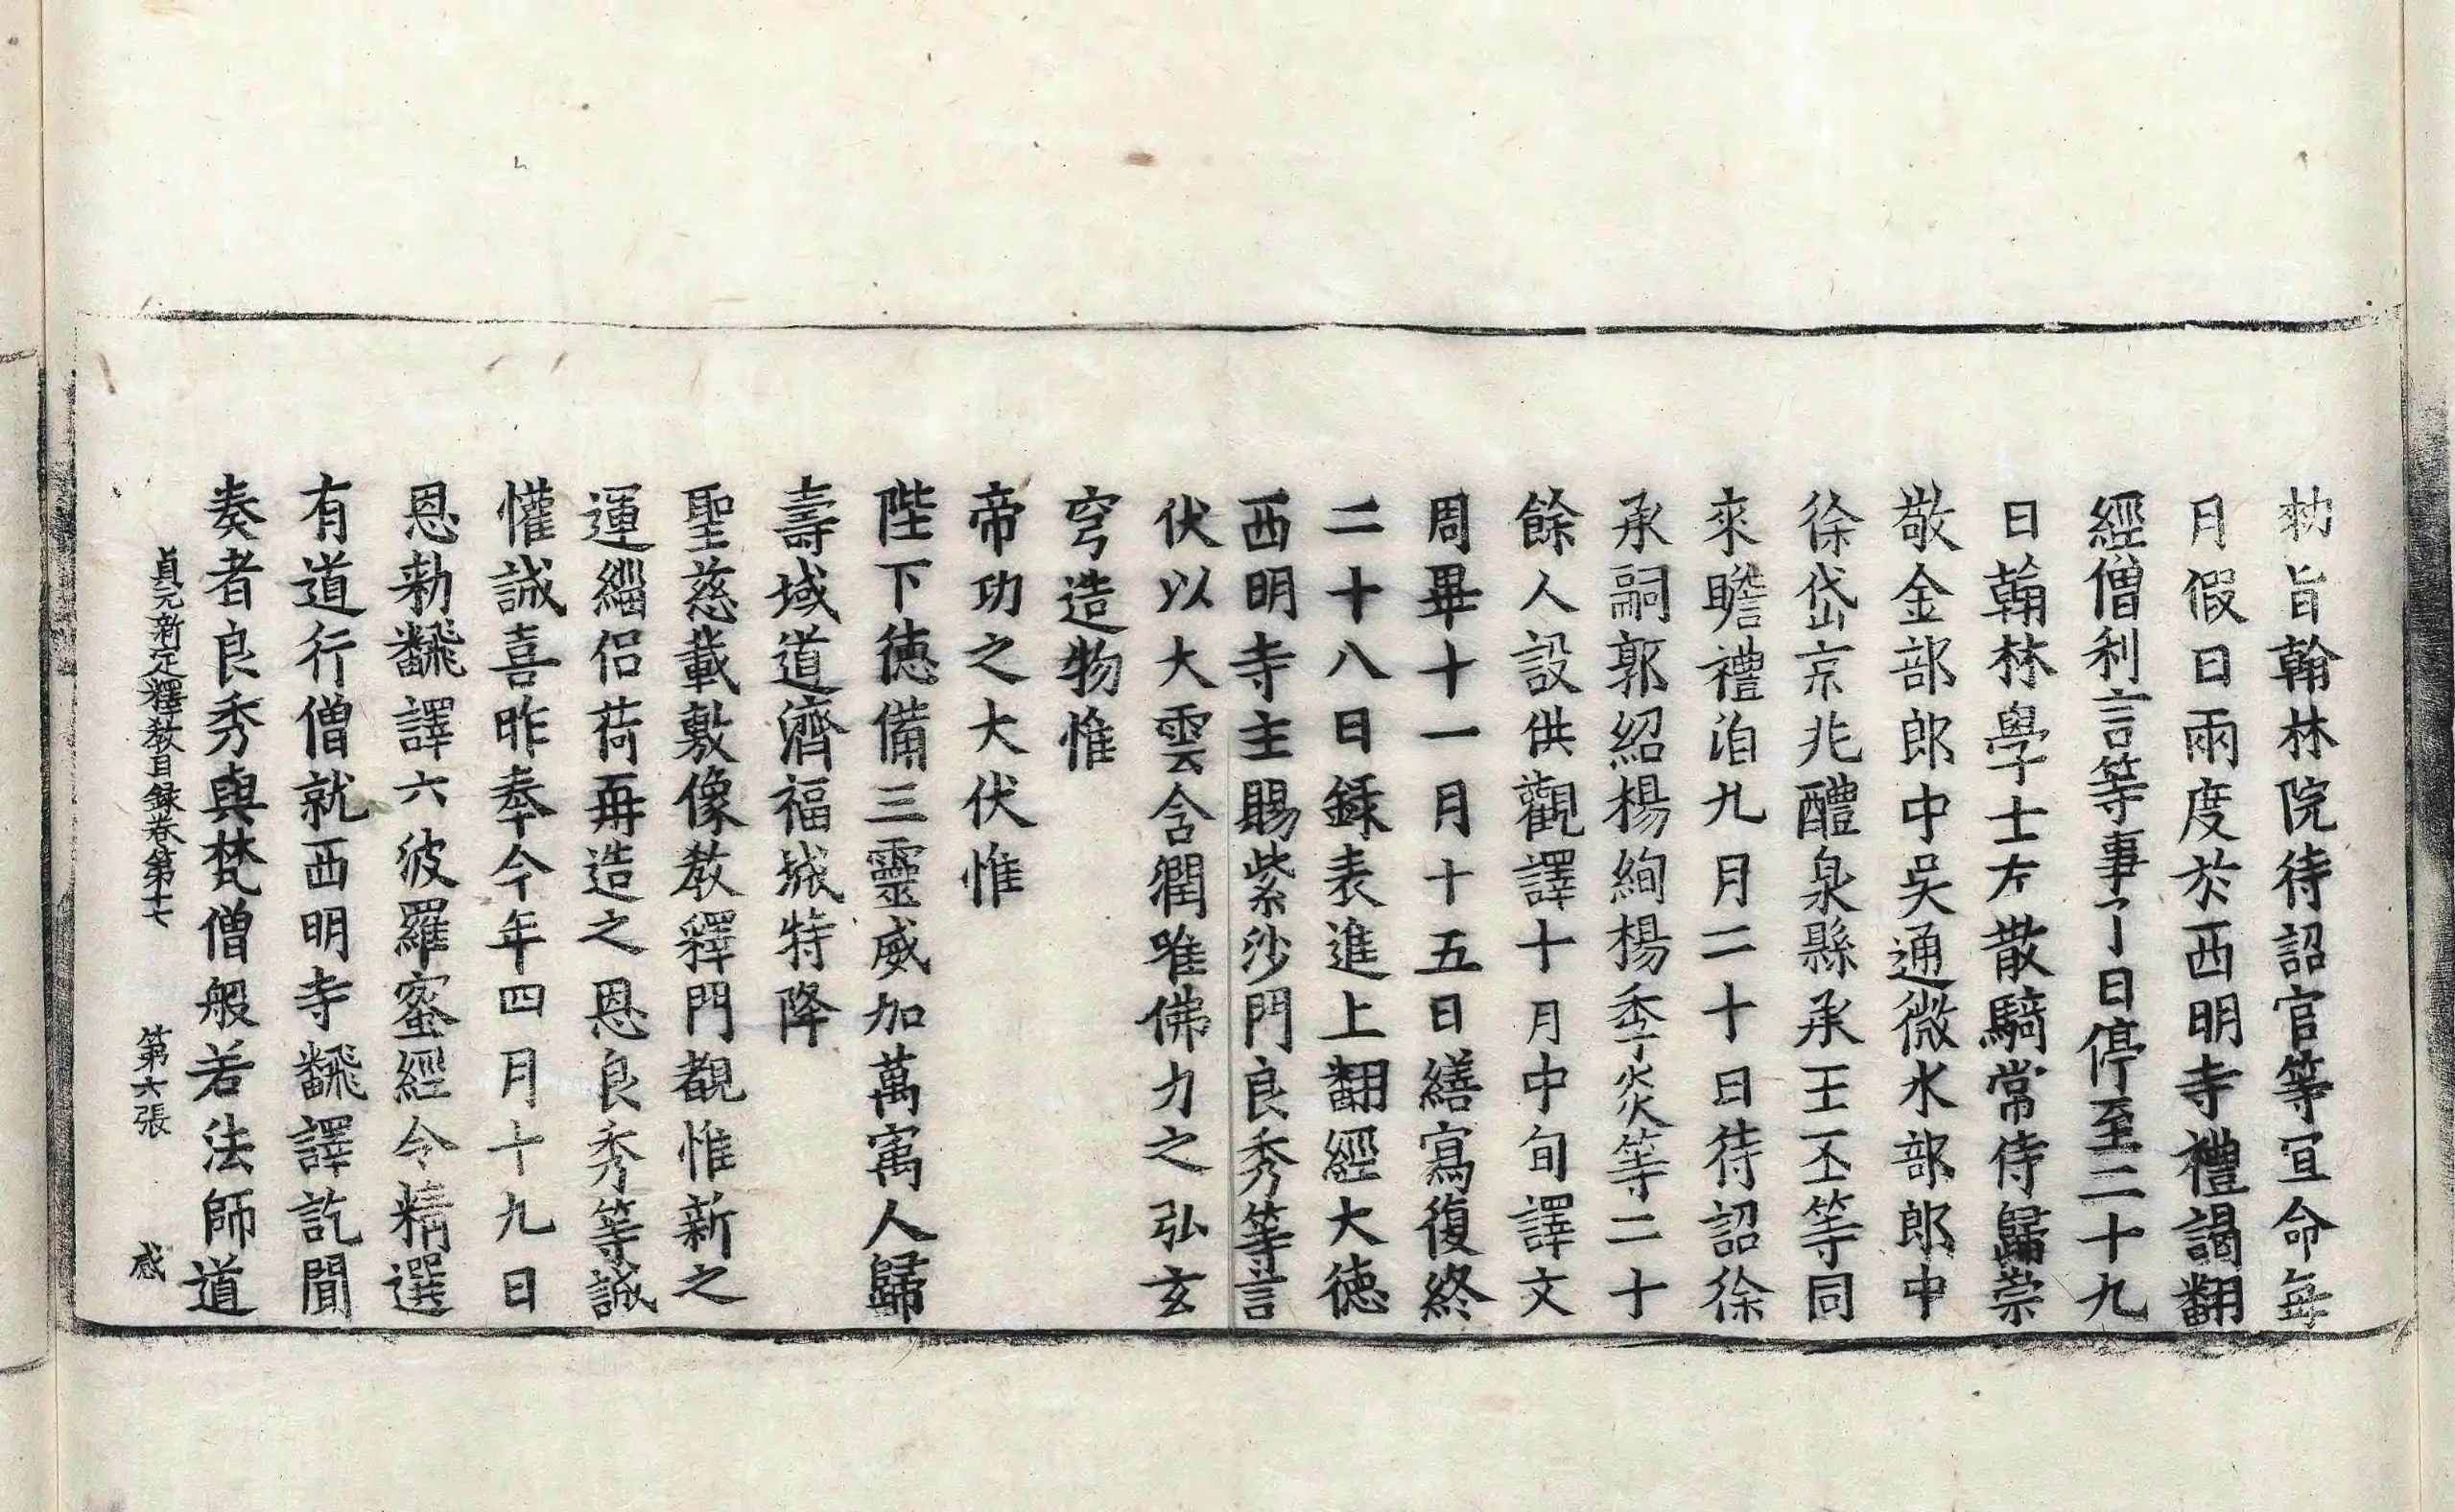 勑旨翰林院待詔官等宣命每
月假日兩度於西明寺禮謁翻
經僧利言等事了日停至二十九
日翰林學士左散騎常侍歸崇
敬金部郎中吳通微水部郎中
徐岱京兆醴泉縣丞王丕等同
來瞻禮洎九月二十日待詔徐
承嗣郭紹楊絢楊季炎等二十
餘人設供觀譯十月中旬譯文
周畢十一月十五日繕寫復終
二十八日録表進上翻經大德
西明寺主賜紫沙門良秀等言
伏以大雲含潤唯佛力之弘玄
穹造物惟
帝功之大伏惟
陛下德備三靈威加萬㝢人歸
壽域道濟福城特降
聖慈載敷像教釋門覩惟新之
運緇侶荷再造之恩良秀等誠
懽誠喜昨奉今年四月十九日
恩勑飜譯六波羅蜜經令精選
有道行僧就西明寺飜譯訖聞
奏者良秀與梵僧般若法師道
貞元新定釋教目録卷第十七 第六張 感